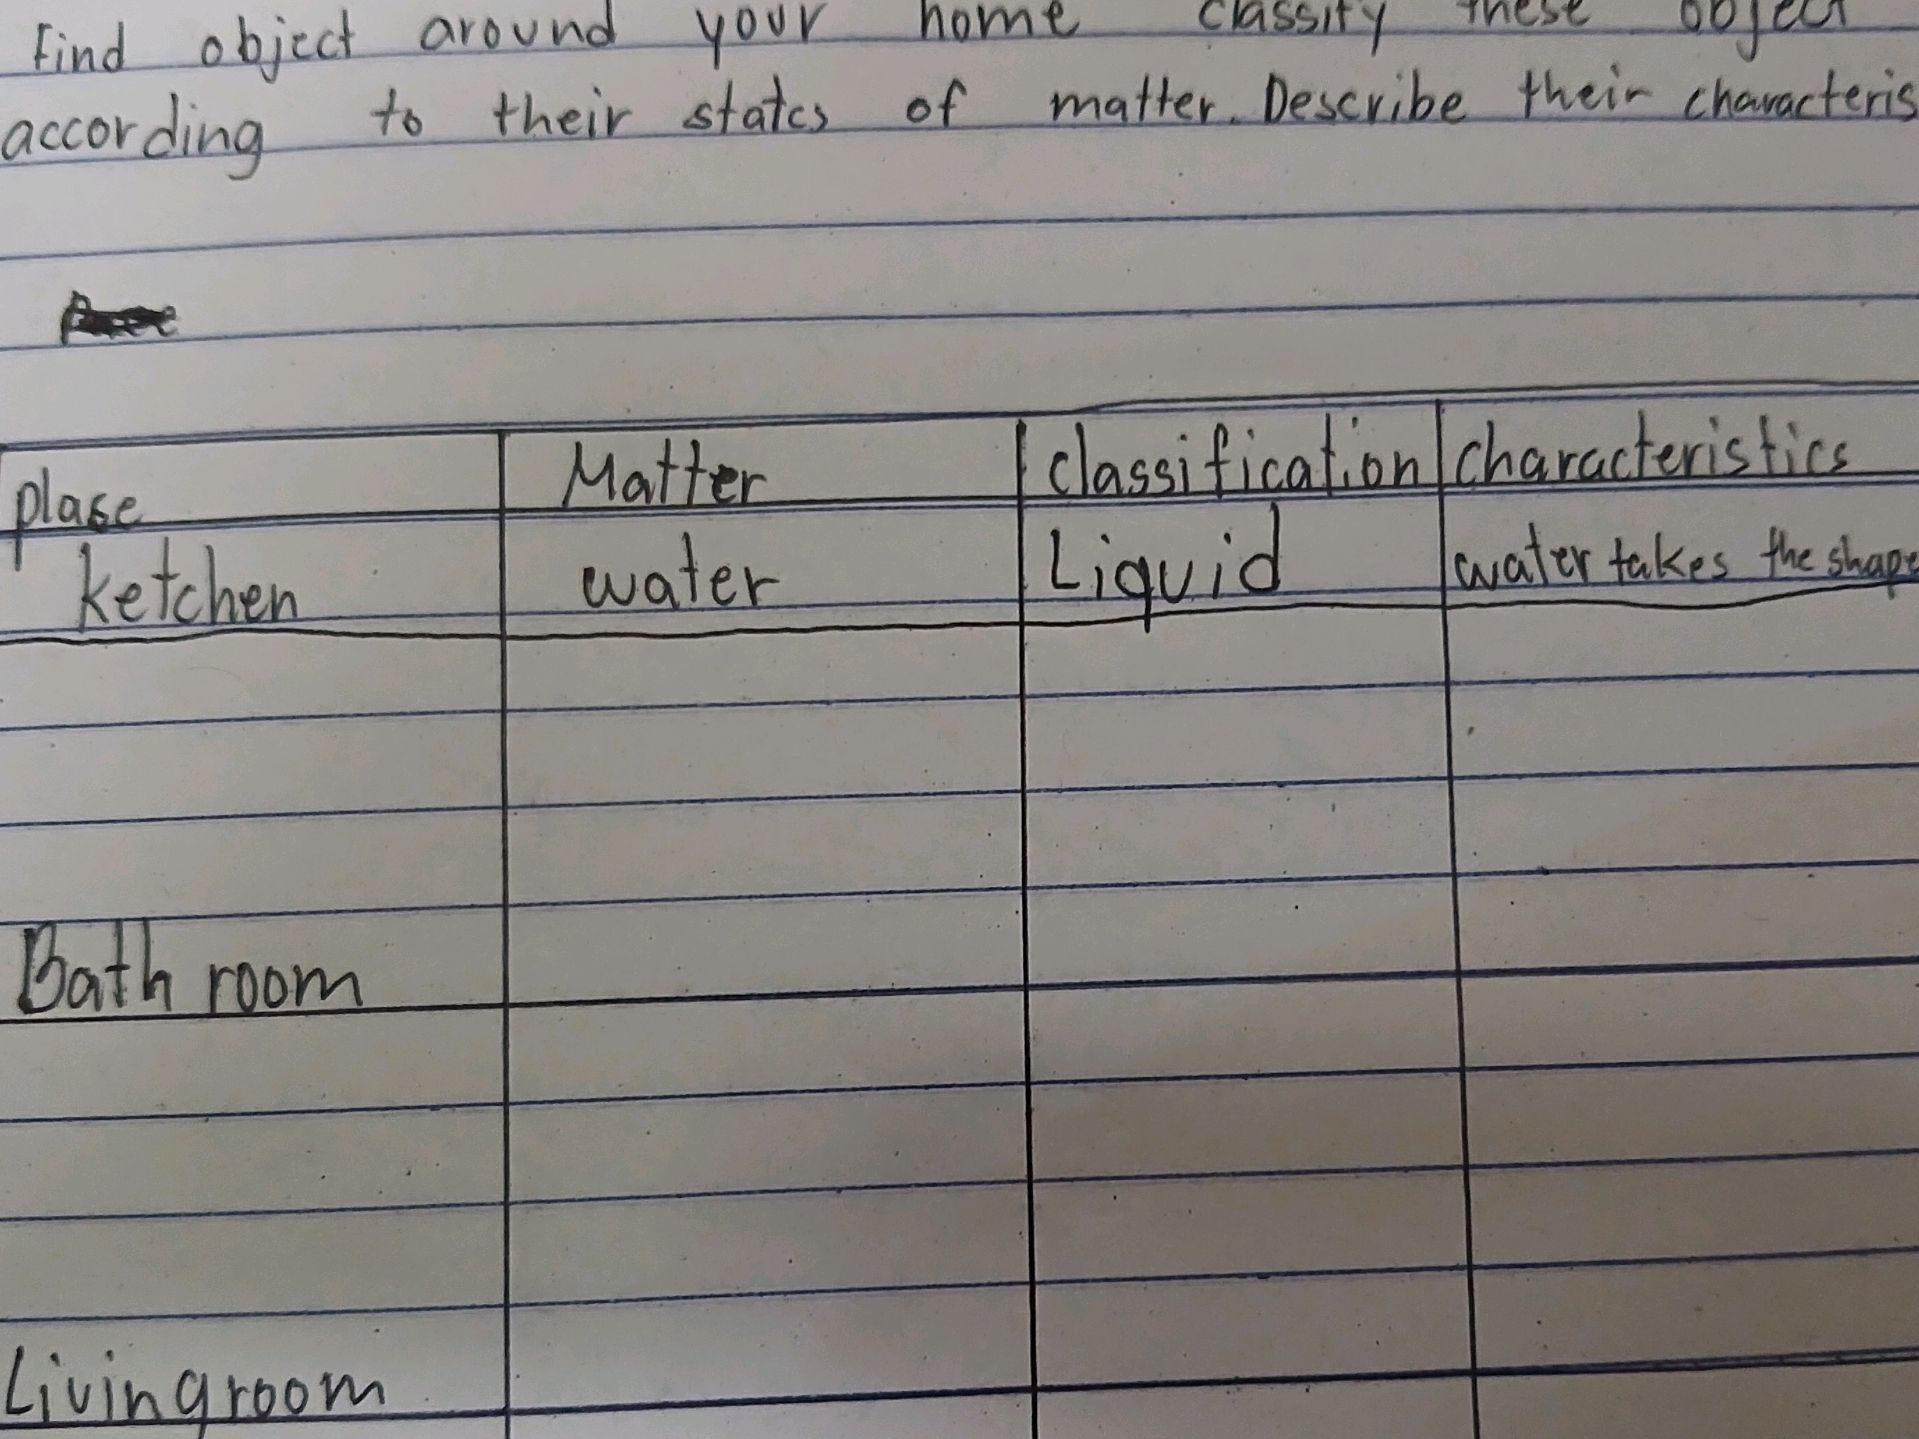 Find object around your home classify these object
according to their states of matter. Describe their characteris
plase Matter classification characteristics
ketchen water Liquid water takes the shape
Bath room
Living room